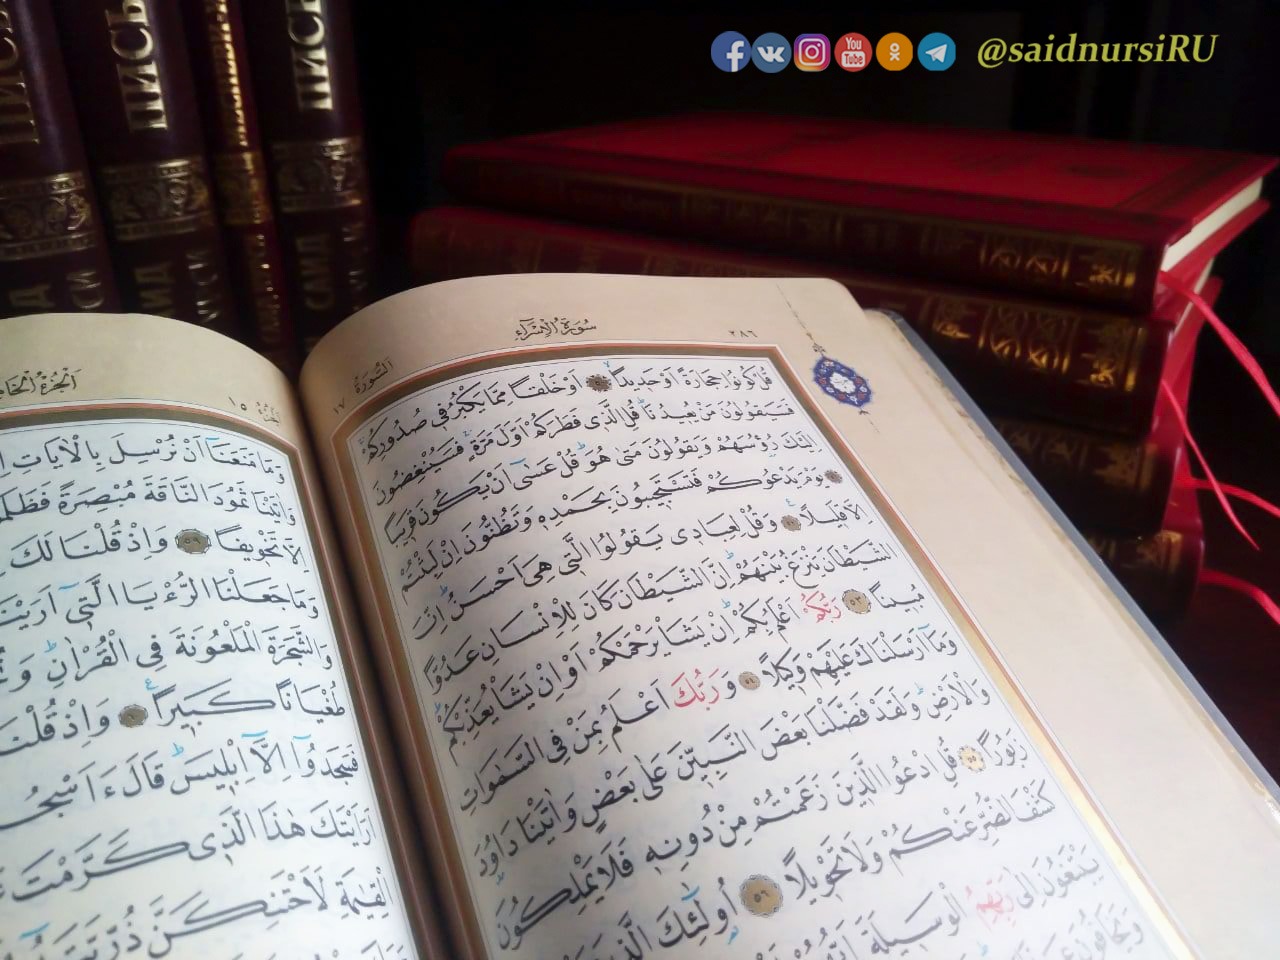 @saidnursiRU
You
Tube
ПИСЬ
ПИСЬ
САИД
سُورَةُ الْإِسْرَاءِ
٢٨٦
اَلسُّورَةُ
١٧
قُلْ كُونُوا حِجَارَةً اَوْ حَدِيدًا ٥٠ اَوْ خَلْقًا مِمَّا يَكْبُرُ فٖى صُدُورِكُمْ
فَسَيَقُولُونَ مَنْ يُعٖيدُنَا قُلِ الَّذٖى فَطَرَكُمْ اَوَّلَ مَرَّةٍ فَسَيُنْغِضُونَ
اِلَيْكَ رُؤُسَهُمْ وَيَقُولُونَ مَتٰى هُوَ قُلْ عَسٰٓى اَنْ يَكُونَ قَرٖيبًا
يَوْمَ يَدْعُوكُمْ فَتَسْتَجٖيبُونَ بِحَمْدِهٖ وَتَظُنُّونَ اِنْ لَبِثْتُمْ
اِلَّا قَلٖيلًا وَقُلْ لِعِبَادٖى يَقُولُوا الَّتٖى هِىَ اَحْسَنُ اِنَّ
الشَّيْطَانَ يَنْزَغُ بَيْنَهُمْ اِنَّ الشَّيْطَانَ كَانَ لِلْاِنْسَانِ عَدُوًّا
مُبٖينًا ٥٣ رَبُّكُمْ اَعْلَمُ بِكُمْ اِنْ يَشَأْ يَرْحَمْكُمْ اَوْ اِنْ يَشَأْ يُعَذِّبْكُمْ
وَمَٓا اَرْسَلْنَاكَ عَلَيْهِمْ وَكٖيلًا ٥٤ وَرَبُّكَ اَعْلَمُ بِمَنْ فِى السَّمٰوَاتِ
وَالْاَرْضِ وَلَقَدْ فَضَّلْنَا بَعْضَ النَّبِيّٖنَ عَلٰى بَعْضٍ وَاٰتَيْنَا دَاوُدَ
زَبُورًا ٥٥ قُلِ ادْعُوا الَّذٖينَ زَعَمْتُمْ مِنْ دُونِهٖ فَلَا يَمْلِكُونَ
كَشْفَ الضُّرِّ عَنْكُمْ وَلَا تَحْوٖيلًا ٥٦ اُولٰٓئِكَ الَّذٖينَ
يَبْتَغُونَ اِلٰى رَبِّهِمُ الْوَسٖيلَةَ اَيُّهُمْ
وَيَخَافُونَ
اَلْجُزْءُ
١٥
وَمَا مَنَعَنَٓا اَنْ نُرْسِلَ بِالْاٰيَاتِ
وَاٰتَيْنَا ثَمُودَ النَّاقَةَ مُبْصِرَةً فَظَلَمُوا
اِلَّا تَخْوٖيفًا ٥٩ وَاِذْ قُلْنَا لَكَ
وَمَا جَعَلْنَا الرُّءْيَا الَّتٖٓى اَرَيْنَا
وَالشَّجَرَةَ الْمَلْعُونَةَ فِى الْقُرْاٰنِ
طُغْيَانًا كَبٖيرًا ٦٠ وَاِذْ قُلْنَا
فَسَجَدُٓوا اِلَّٓا اِبْلٖيسَ قَالَ ءَاَسْجُدُ
اَرَاَيْتَكَ هٰذَا الَّذٖى كَرَّمْتَ
الْقِيٰمَةِ لَاَحْتَنِكَنَّ ذُرِّيَّتَهُ